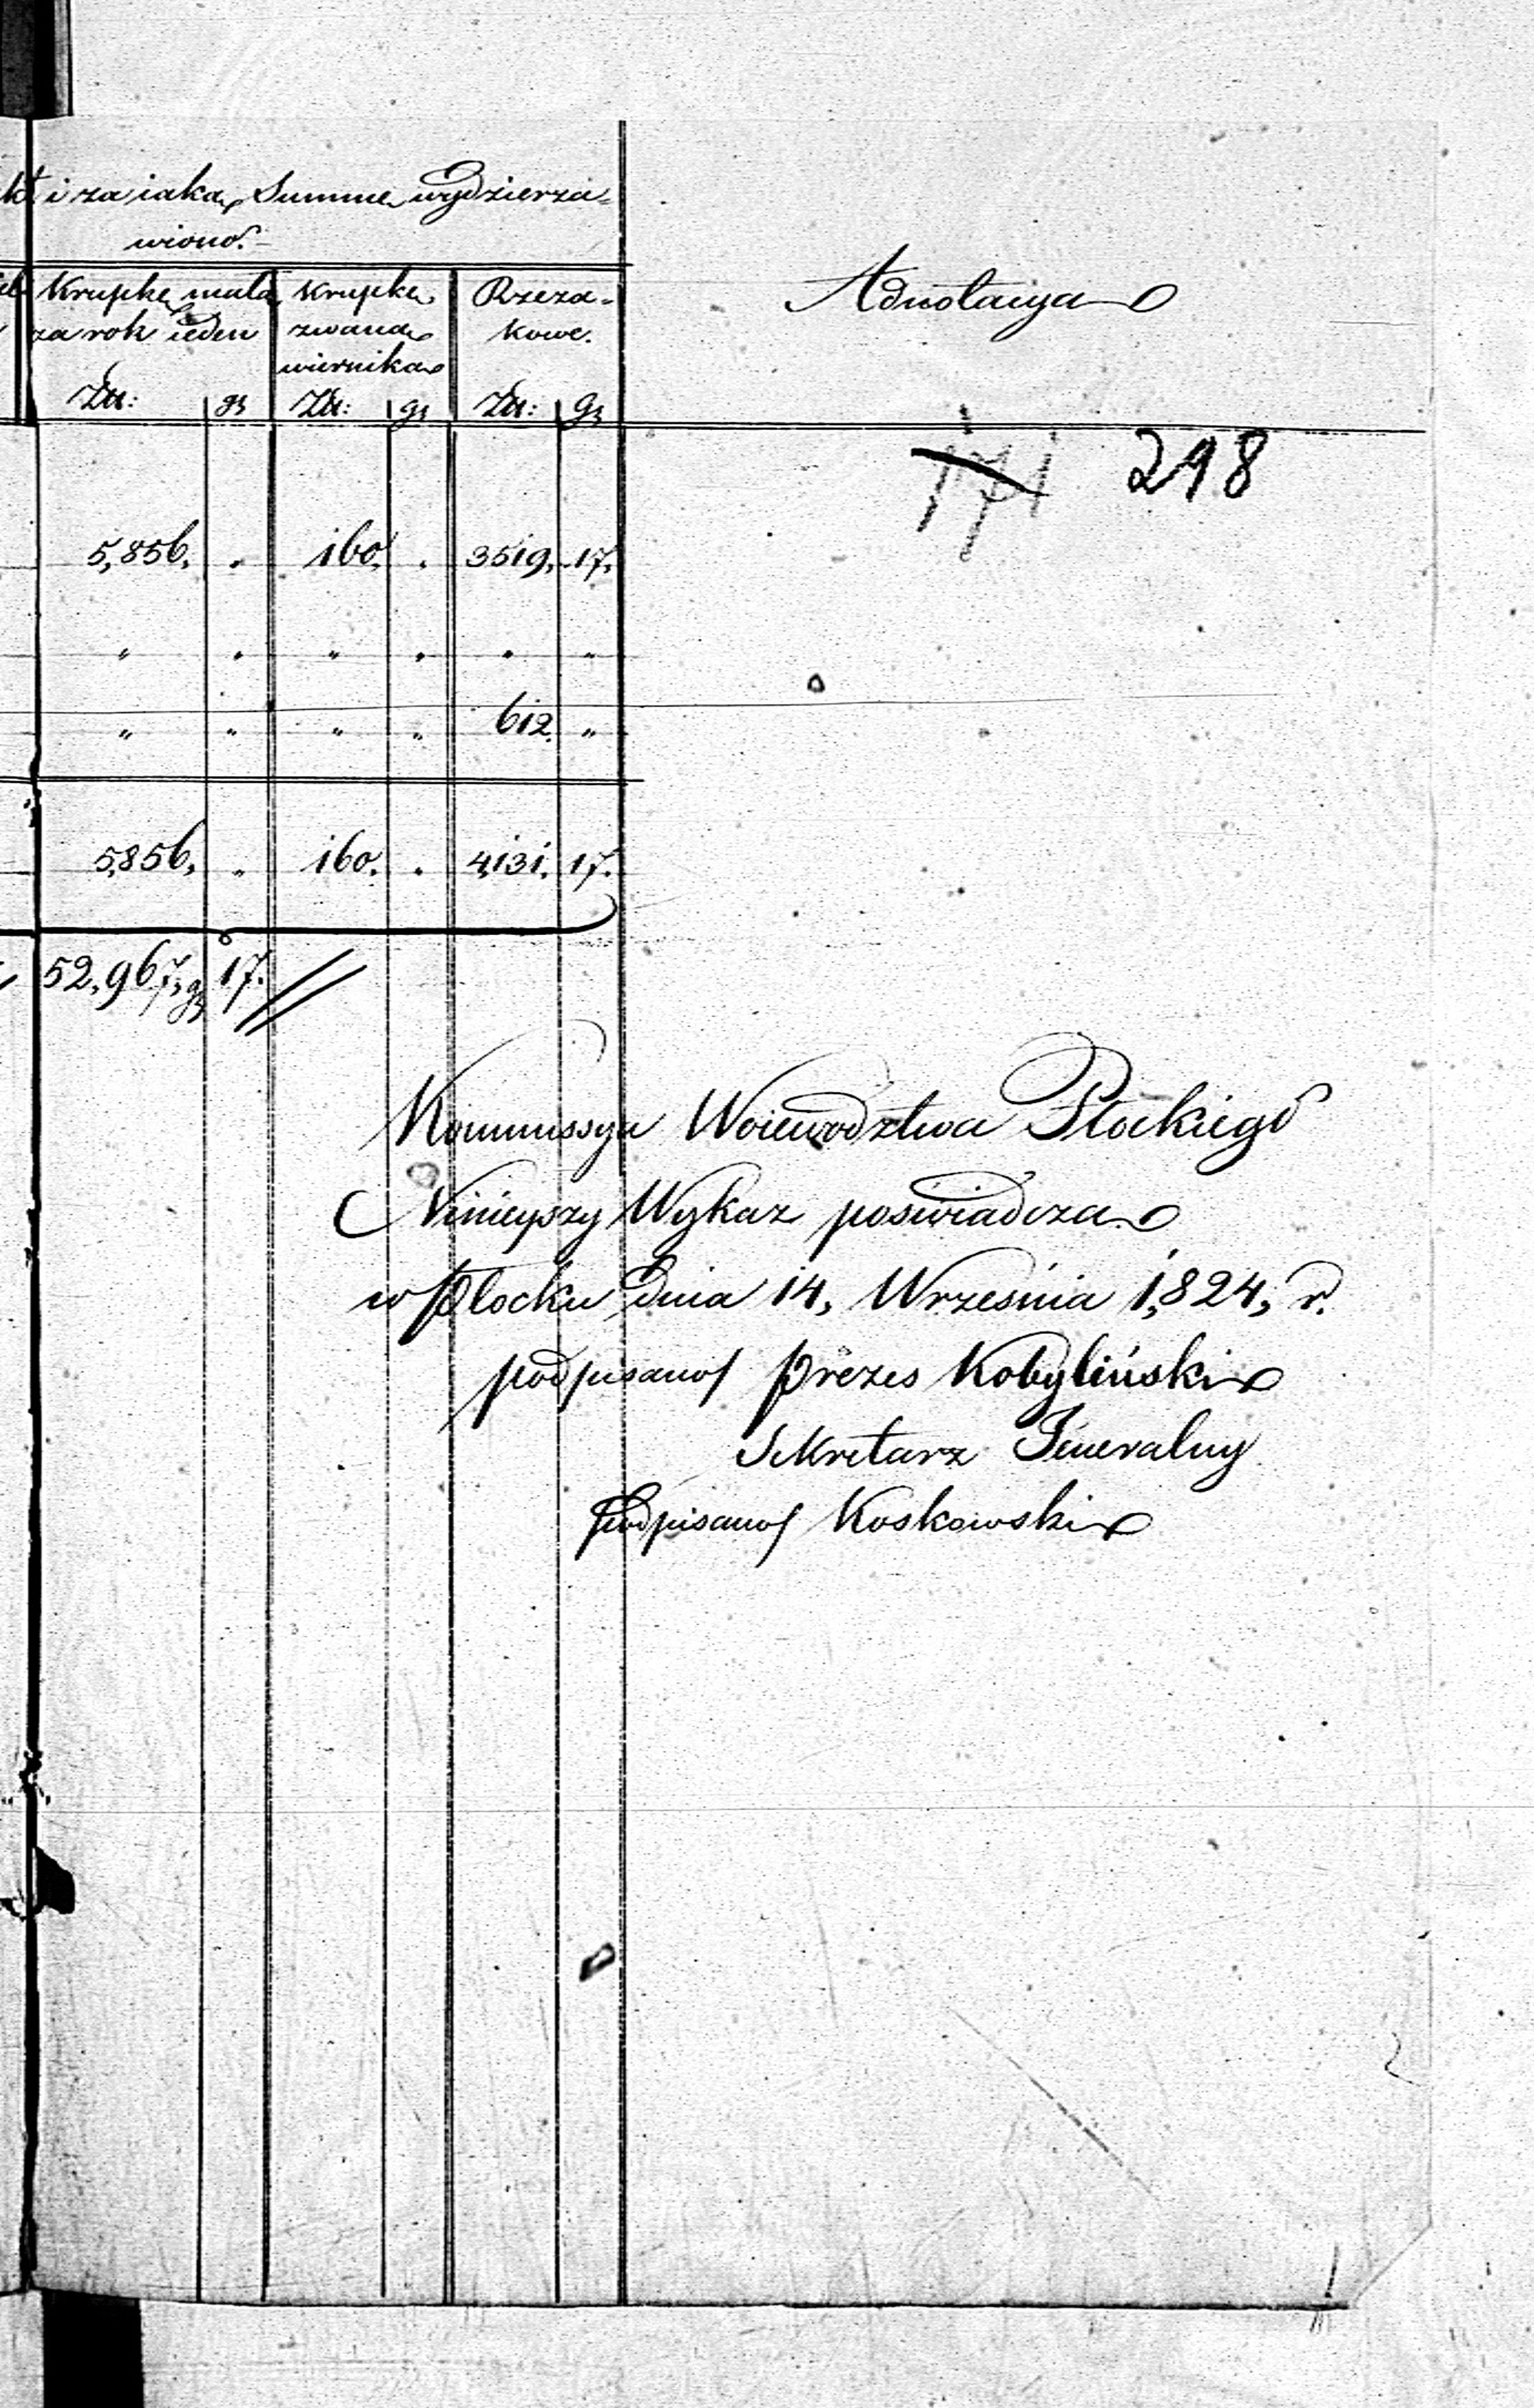 kt i za iaką Summę wydzierża-
wiono.
Krupkę małą krupkę Rzeza-
za rok ieden zwaną kowe.
wiernika
Złł: gr Złł: gr Złł: gr
Adnotacya
171 298
5,856. " 160. " 3519. 17.
" " " " " "
" " " " 612. "
5,856. " 160. " 4,131. 17.
52,967, gr 17.
Kommissya Woiewodztwa Płockiego
Ninieyszy Wykaz poświadcza
w Płocku Dnia 14, Września 1,824, r.
podpisano/ Prezes Kobyliński
Sekretarz Jeneralny
podpisano/ Koskowski